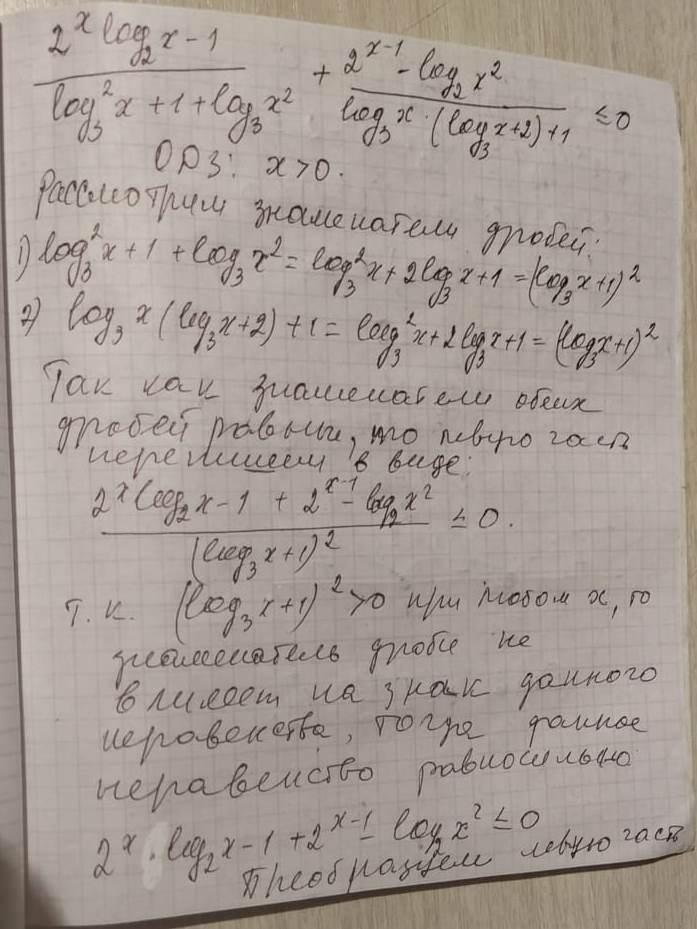 (2^x log₂x - 1)/(log₃²x + 1 + log₃x²) + (2^(x-1) - log₂x²)/(log₃x · (log₃x+2)+1) ≤ 0
ОДЗ: x>0.
Рассмотрим знаменатели дробей:
1) log₃²x + 1 + log₃x² = log₃²x + 2log₃x + 1 = (log₃x+1)²
2) log₃x (log₃x+2) + 1 = log₃²x + 2log₃x + 1 = (log₃x+1)²
Так как знаменатели обеих
дробей равны, то левую часть
перепишем в виде:
(2^x log₂x - 1 + 2^(x-1) - log₂x²)/((log₃x+1)²) ≤ 0.
т.к. (log₃x+1)² >0 при любом x, то
знаменатель дроби не
влияет на знак данного
неравенства, тогда данное
неравенство равносильно
2^x · log₂x - 1 + 2^(x-1) - log₂x² ≤ 0
Преобразуем левую часть